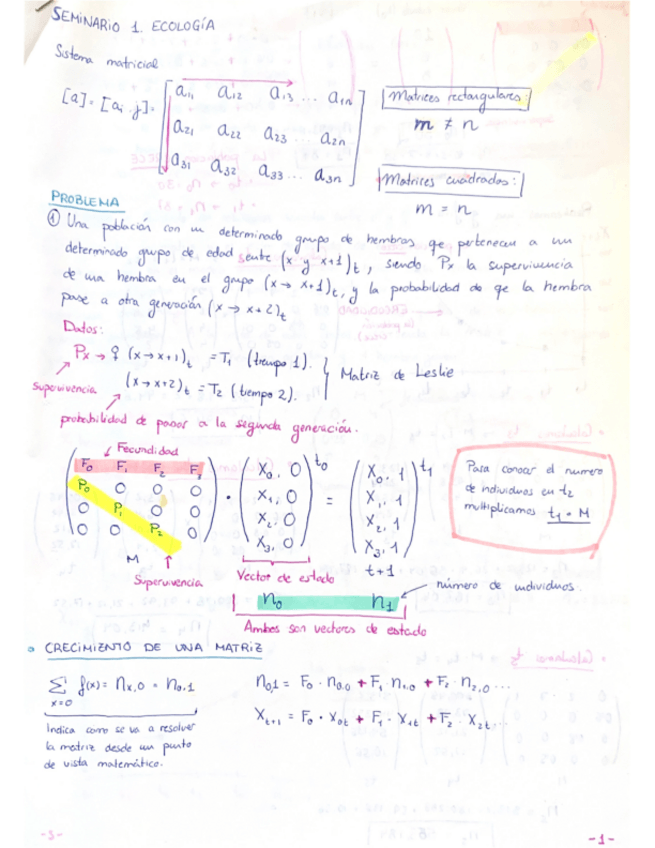 SEMINARIO 1. ECOLOGÍA
Sistema matricial
[a] = [ai,j] =
a11 a12 a13 ... a1n
a21 a22 a23 ... a2n
a31 a32 a33 ... a3n
Matrices rectangulares:
m ≠ n
Matrices cuadradas:
m = n
PROBLEMA
① Una población con un determinado grupo de hembras qe pertenecen a un
determinado grupo de edad entre (x y x+1)t, siendo Px la supervivencia
de una hembra en el grupo (x → x+1)t, y la probabilidad de qe la hembra
pase a otra generación (x → x+2)t
Datos:
Px → ♀ (x→x+1)t = T1 (tiempo 1).
(x→x+2)t = T2 (tiempo 2).
Matriz de Leslie
Supervivencia
probabilidad de pasar a la segunda generación.
Fecundidad
F0 F1 F2 F3
P0 0 0 0
0 P1 0 0
0 0 P2 0
M
Supervivencia
·
X0, 0
X1, 0
X2, 0
X3, 0
t0
Vector de estado
=
X0, 1
X1, 1
X2, 1
X3, 1
t1
t+1
Para conocer el numero
de individuos en t2
multiplicamos t1 · M
n0 n1
número de individuos.
Ambos son vectores de estado
CRECIMIENTO DE UNA MATRIZ
∑ f(x) = nx,0 = n0,1
x=0
Indica como se va a resolver
la matriz desde un punto
de vista matemático.
n0,1 = F0 · n0,0 + F1 · n1,0 + F2 · n2,0 ...
Xt+1 = F0 · X0t + F1 · X1t + F2 · X2t ...
-1-